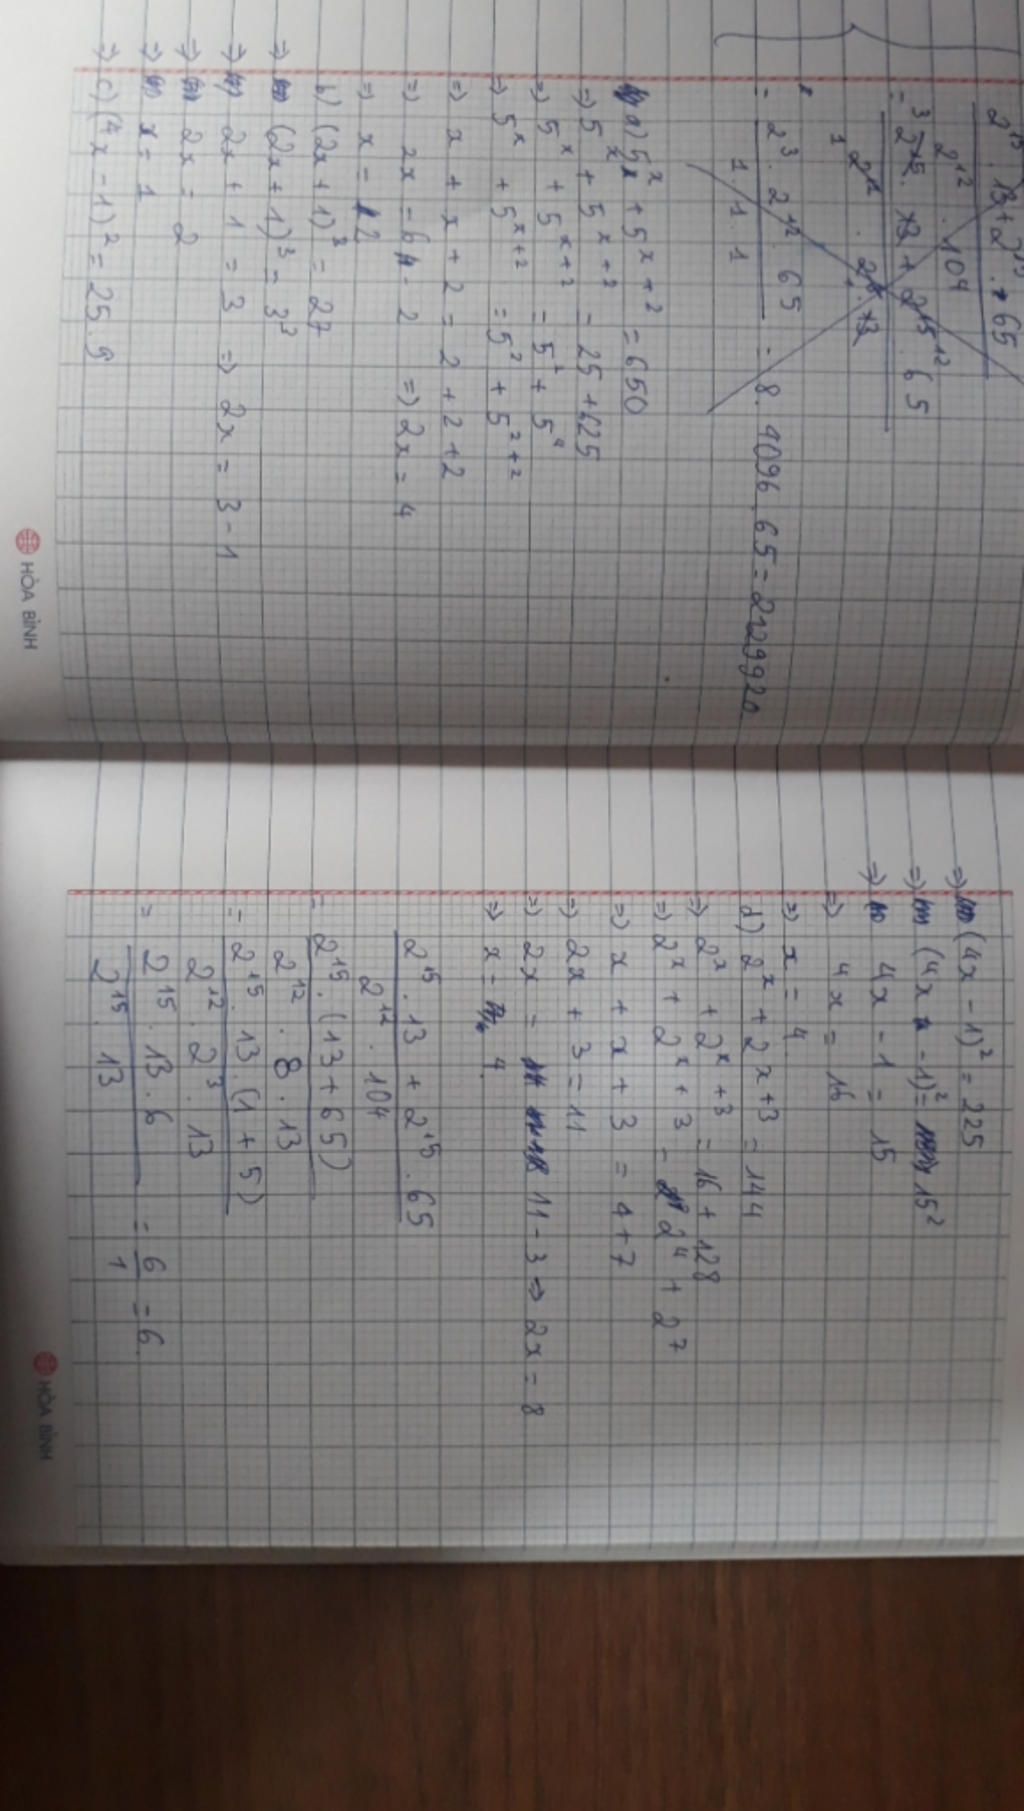 2^15 . 13 + 2^15 . 65
2^12 . 104
= 2^15 . 13 + 2^15 . 65
2^12 . 2^3 . 13
= 2^3 . 2^12 . 65 = 8 . 4096 . 65 = 2129920
1 . 1 . 1
a) 5^x + 5^x+2 = 650
=> 5^x + 5^x+2 = 25 + 625
=> 5^x + 5^x+2 = 5^2 + 5^4
=> 5^x + 5^x+2 = 5^2 + 5^2+2
=> x + x + 2 = 2 + 2 + 2
=> 2x = 6 - 2 => 2x = 4
=> x = 2
b) (2x + 1)^3 = 27
=> (2x + 1)^3 = 3^3
=> 2x + 1 = 3 => 2x = 3 - 1
=> 2x = 2
=> x = 1
=> c) (4x - 1)^2 = 25 . 9
HÒA BÌNH
=> (4x - 1)^2 = 225
=> (4x - 1)^2 = 15^2
=> 4x - 1 = 15
=> 4x = 16
=> x = 4
d) 2^x + 2^x+3 = 144
=> 2^x + 2^x+3 = 16 + 128
=> 2^x + 2^x+3 = 2^4 + 2^7
=> x + x + 3 = 4 + 7
=> 2x + 3 = 11
=> 2x = 11 - 3 => 2x = 8
=> x = 4
2^15 . 13 + 2^15 . 65
2^12 . 104
= 2^15 . (13 + 65)
2^12 . 8 . 13
= 2^15 . 13 . (1 + 5)
2^12 . 2^3 . 13
= 2^15 . 13 . 6 = 6 = 6
2^15 . 13 1
HÒA BÌNH